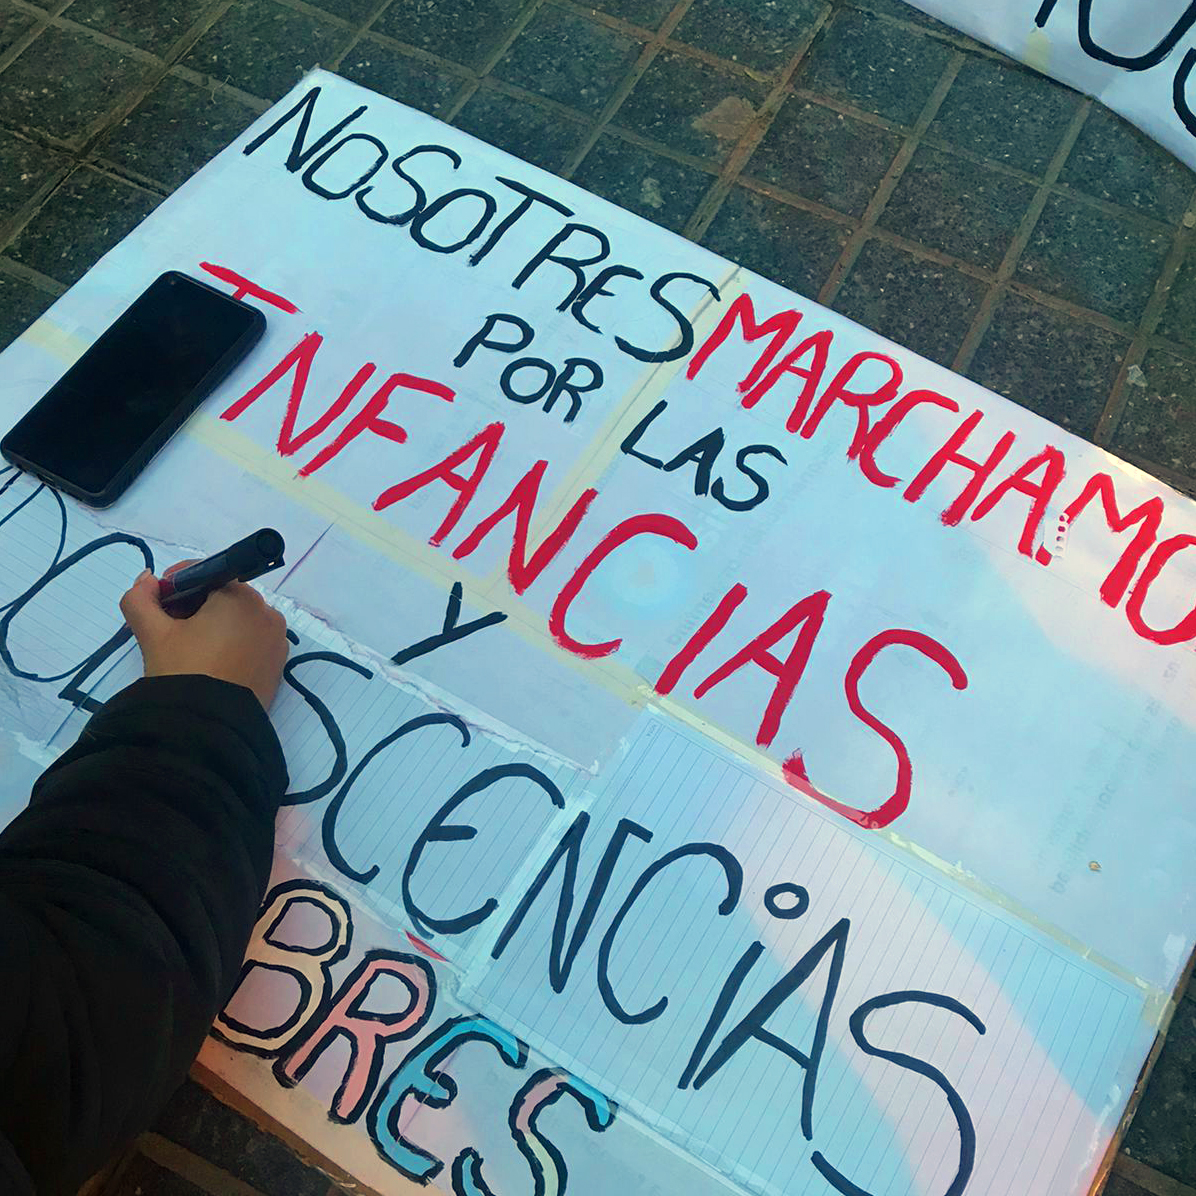 NOSOTRES MARCHAMO
POR LAS
INFANCIAS
Y
SCENCIAS
BRES